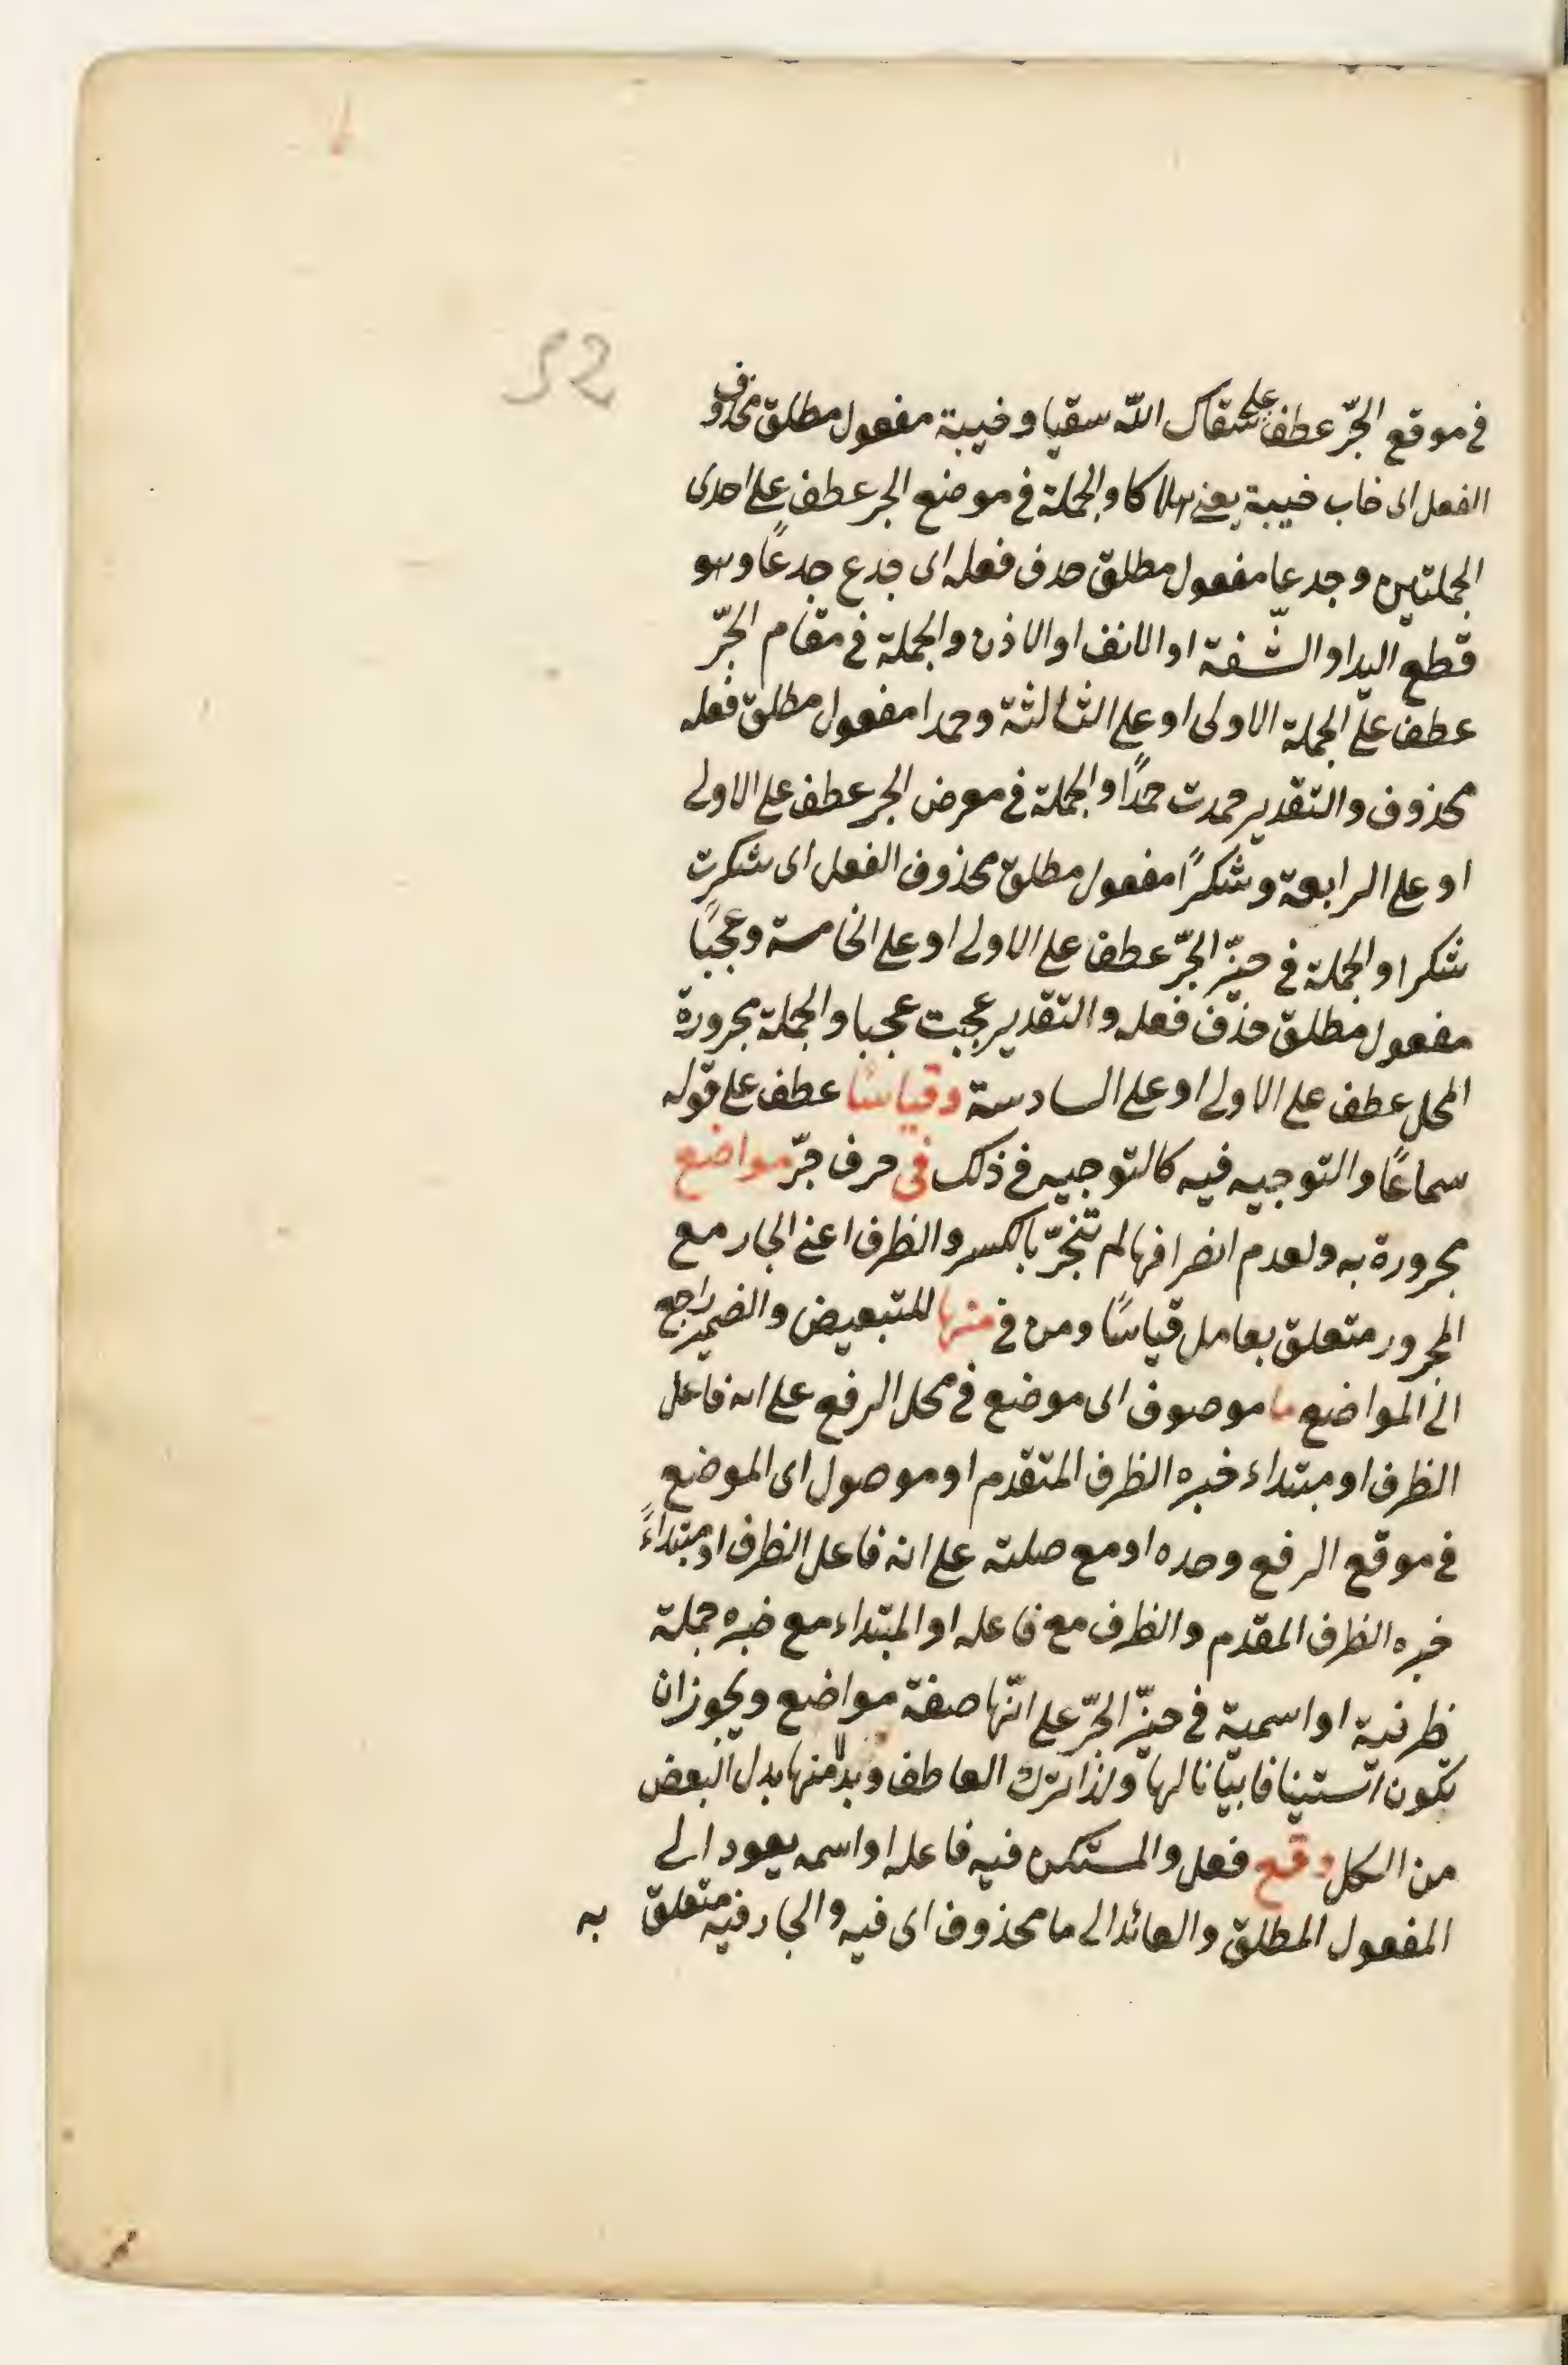 52
في موقع الجرّ عطف على سقاك اللّه سقيا وخيبة مفعول مطلق محذوف
الفعل اى خاب خيبة يعنى هلاكا والجملة في موضع الجر عطف على احدى
الجملتين وجدعا مفعول مطلق حذف فعله اى جدع جدعًا وهو
قطع اليد او الشّفة او الانف او الاذن والجملة في مقام الجرّ
عطف على الجملة الاولى او على الثالثة وحمدا مفعول مطلق فعله
محذوف والتقدير حمدت حمدًا والجملة في معرض الجر عطف على الاولى
او على الرابعة وشكرًا مفعول مطلق محذوف الفعل اى شكرت
شكرا والجملة في حيّز الجرّ عطف على الاولى او على الخامسة وعجبًا
مفعول مطلق حذف فعله والتقدير عجبت عجبا والجملة مجرورة
المحل عطف على الاولى او على السادسة وقياسًا عطف على قوله
سماعًا والتوجيه فيه كالتوجيه في ذلك في حرف جرّ مواضع
مجرورة به ولعدم انصرافها لم تنجرّ بالكسر والظرف اعنى الجار مع
المجرور متعلق بعامل قياسًا ومن في منها للتبعيض والضمير راجع
الى المواضع ما موصوف اى موضع في محل الرفع على انه فاعل
الظرف او مبتداء خبره الظرف المتقدم او موصول اى الموضع
في موقع الرفع وحده او مع صلته على انه فاعل الظرف او مبتداءً
خبره الظرف المقدم والظرف مع فاعله او المبتداء مع خبره جملة
ظرفية او اسمية في حيّز الجرّ على انّها صفة مواضع ويجوز ان
تكون استينافا بيانا لها ولذا ترك العاطف وبدلا منها بدل البعض
من الكل وقع فعل والمستكن فيه فاعله او اسمه يعود الى
المفعول المطلق والعائد الى ما محذوف اى فيه والجار فيه متعلق به